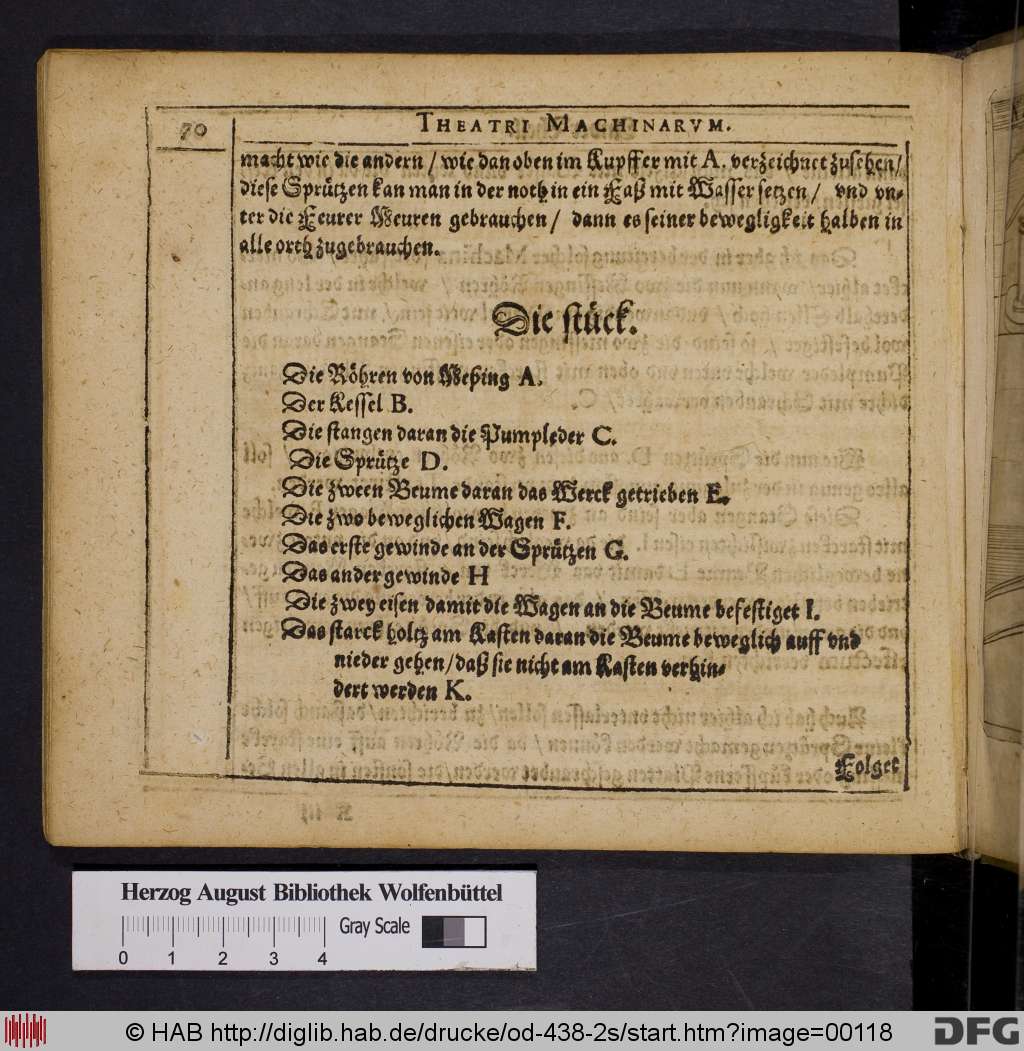 70
THEATRI MACHINARVM.
macht wie die andern / wie dan oben im Kupffer mit A. verzeichnet zusehen /
diese Sprützen kan man in der noth in ein Faß mit Wasser setzen / vnd vn-
ter die Feurer Meuren gebrauchen / dann es seiner bewegligkeit halben in
alle orth zugebrauchen.
Die stück.
Die Röhren von Meßing A.
Der Kessel B.
Die stangen daran die Pumpleder C.
Die Sprütze D.
Die zween Beume daran das Werck getrieben E.
Die zwo beweglichen Wagen F.
Das erste gewinde an der Sprützen G.
Das ander gewinde H
Die zwey eisen damit die Wagen an die Beume befestiget I.
Das starck holtz am Kasten daran die Beume beweglich auff vnd
nieder gehen / daß sie nicht am Kasten verhin-
dert werden K.
Folget
Herzog August Bibliothek Wolfenbüttel
Gray Scale
0 1 2 3 4
© HAB http://diglib.hab.de/drucke/od-438-2s/start.htm?image=00118
DFG